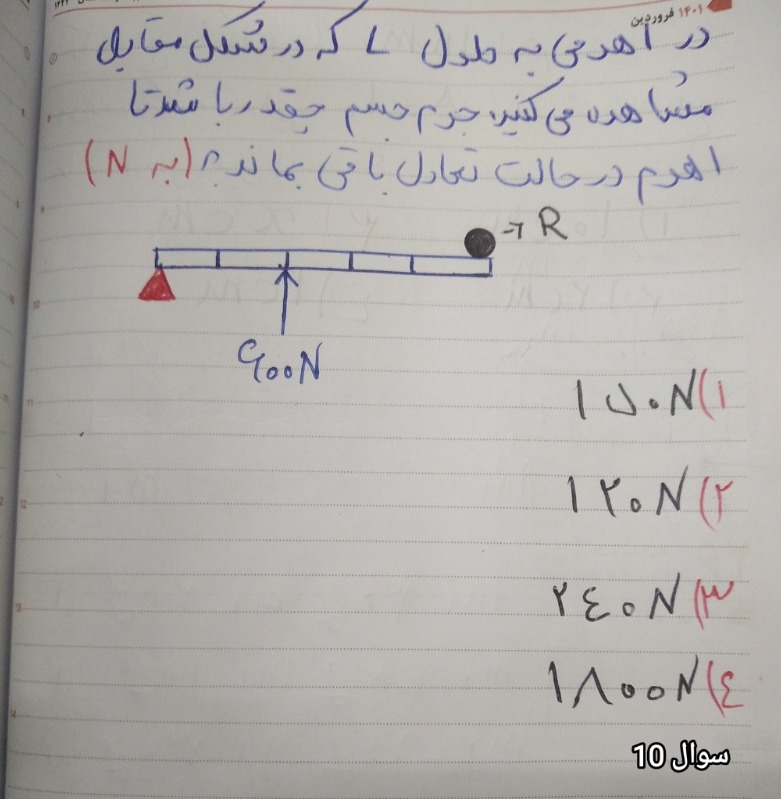 ۱۴۰۱ فروردین
در اهرمی به طول L که در شکل مقابل
مشاهده می کنید، جرم جسم چقدر باشد تا
اهرم در حالت تعادل باقی بماند؟ (به N)
→ R
۶۰۰N
۱) ۱۵۰N
۲) ۱۲۰N
۳) ۲٤۰N
٤) ۱۸۰۰N
سوال 10